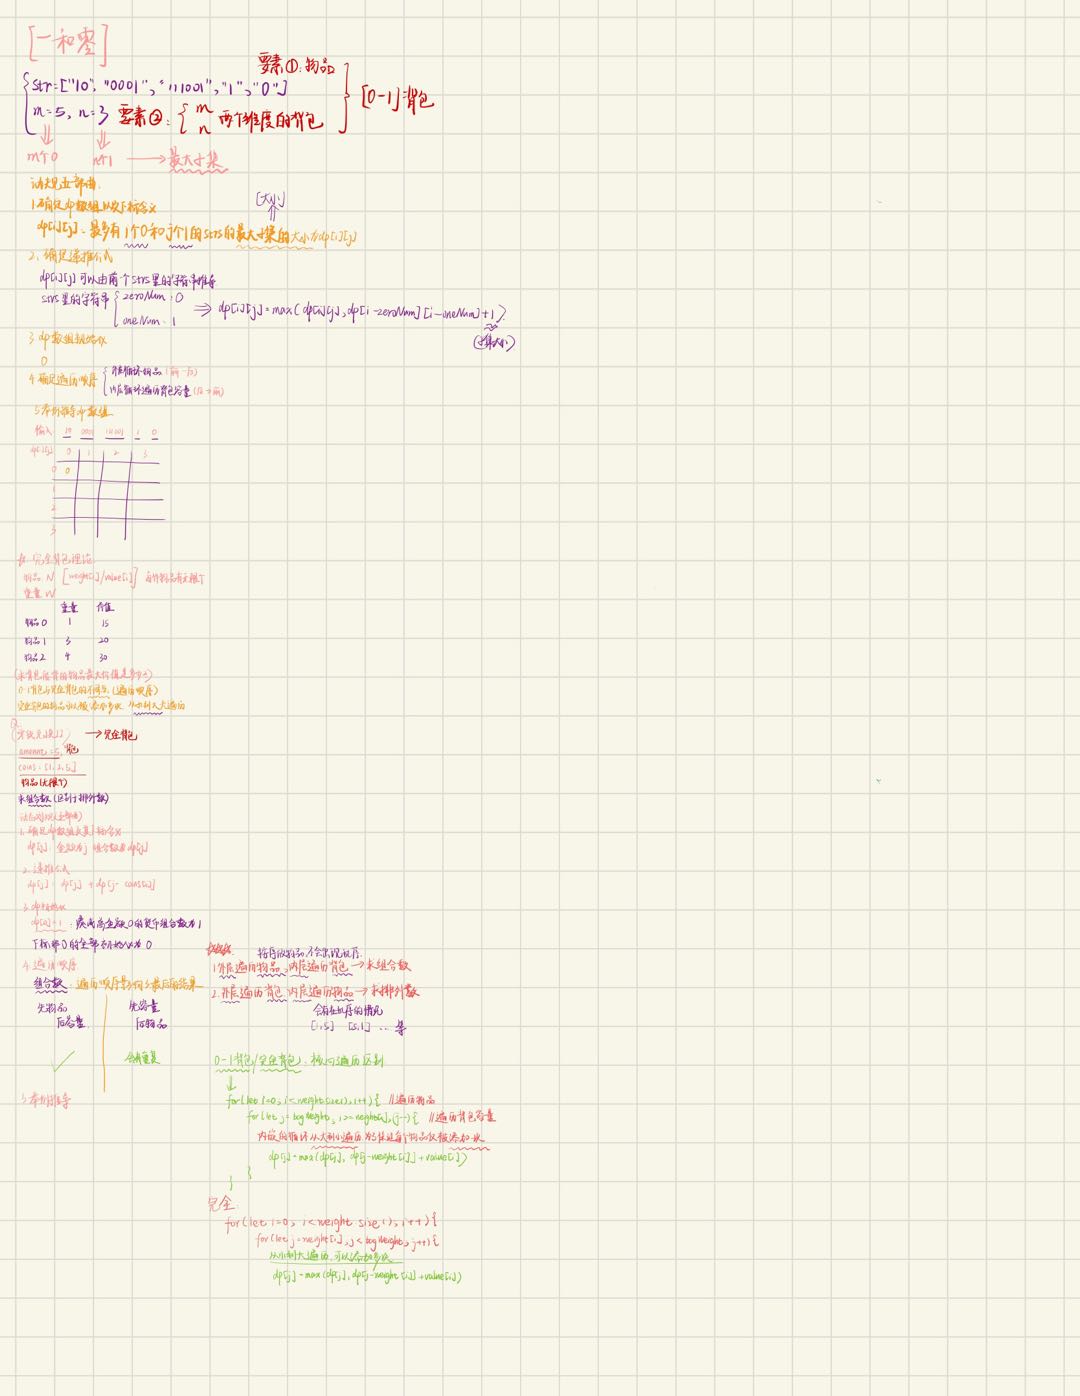 [一和零]
要素①:物品
str=["10","0001","111001","1","0"]
m=5, n=3 要素②: { m n 两个维度的背包
[0-1]背包
m个0 n个1 → 最大子集
动规五部曲.
1.确定dp数组以及下标含义
[大小]
dp[i][j]: 最多有i个0和j个1的strs的最大子集的大小为dp[i][j]
2. 确定递推公式
dp[i][j]可以由前一个strs里的字符串推导
strs里的字符串 { zeroNum: 0
oneNum: 1
⇒ dp[i][j]=max(dp[i][j],dp[i-zeroNum][i-oneNum]+1)
(子集大小)
3 dp数组初始化
0
4.确定遍历顺序 { 外层循环物品 (前→后)
内层循环遍历背包容量 (后→前)
5.举例推导dp数组
输入 10 0001 111001 1 0
dp[i][j] 0 1 2 3
0 0
1
2
3
完全背包理论
物品 N [weight[i]/value[i]] 每件物品有无限个
重量 W
重量 价值
物品0 1 15
物品1 3 20
物品2 4 30
(求背包能背的物品最大价值是多少?)
0-1背包与完全背包的不同点: (遍历顺序)
完全背包的物品可以被添加多次. 从小到大去遍历
(零钱兑换II) → 完全背包
amount = 5, 背包
coins = [1,2,5]
物品(无限个)
求组合数 (区别于排列数)
动态规划(五部曲)
1. 确定dp数组及其下标含义
dp[j]: 金额为j 组合数为dp[j]
2. 递推公式
dp[j] = dp[j] + dp[j- coins[i]]
3. dp初始化
dp[0]=1 : 凑成总金额0的货币组合数为1
下标非0的全部初始化为 0
4. 遍历顺序
组合数: 遍历顺序影响了最后的结果
先物品 先容量
后容量. 后物品
会有重复
5.举例推导
按序放物品, 不会出现乱序.
1.外层遍历物品, 内层遍历背包 → 求组合数
2.外层遍历背包 内层遍历物品 → 求排列数
会有乱序的情况
[1,5] [5,1] ... 等
0-1背包/完全背包: 核心遍历区别
for(let i=0; i<weight.size(); i++){ //遍历物品
for(let j=bagWeight; j>=weight[i]; j--){ //遍历背包容量
内嵌的循环从大到小遍历, 为了保证每个物品仅被添加一次
dp[j]=max(dp[j], dp[j-weight[i]]+value[i])
}
}
完全:
for(let i=0; i<weight.size(); i++){
for(let j=weight[i]; j<bagWeight; j++){
从小到大遍历, 可以添加多次
dp[j]=max(dp[j], dp[j-weight[i]]+value[i])